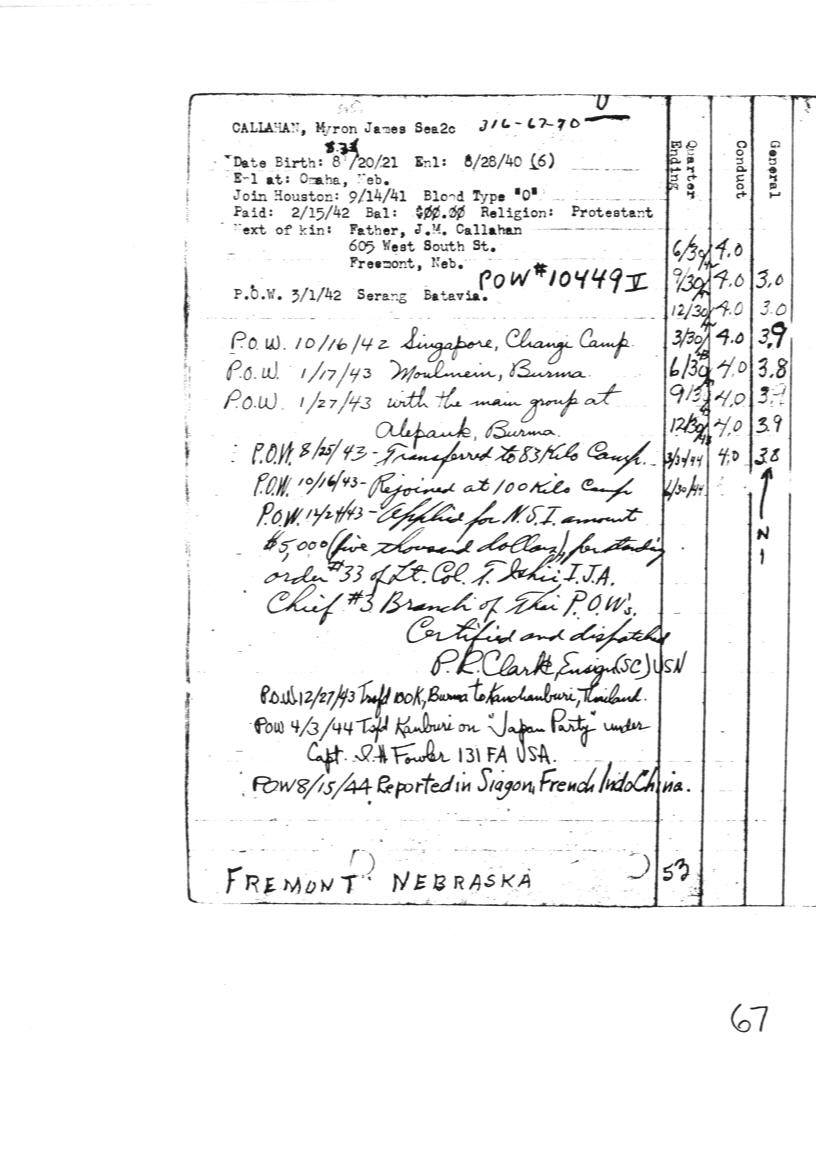 CALLAHAN, Myron James Sea2c 316-67-70
Date Birth: 8/20/21 Enl: 8/28/40 (6)
E-l at: Omaha, Neb.
Join Houston: 9/14/41 Blood Type "O"
Paid: 2/15/42 Bal: $00.00 Religion: Protestant
Next of kin: Father, J.M. Callahan
605 West South St.
Freemont, Neb.
POW #10449 V
P.O.W. 3/1/42 Serang Batavia.
P.O.W. 10/16/42 Singapore, Changi Camp.
P.O.W. 1/17/43 Moulmein, Burma.
P.O.W. 1/27/43 with the main group at
Alepauk, Burma.
P.O.W. 8/25/43 - Transferred to 83 Kilo Camp.
P.O.W. 10/16/43 - Rejoined at 100 Kilo Camp
P.O.W. 12/24/43 - Applied for N.S.I. amount
$5,000 (five thousand dollars), per standing
order #33 of Lt. Col. T. Ishii I.J.A.
Chief #3 Branch of Thai P.O.W's.
Certified and dispatched
P.R. Clark, Ensign (SC) USN
POW 12/27/43 Trsf'd 100K, Burma to Kanchanburi, Thailand.
POW 4/3/44 Tsfd Kanburi on "Japan Party" under
Capt. Fowler 131 FA USA.
POW 8/15/44 Reported in Siagon, French IndoChina.
FREMONT NEBRASKA
53
Quarter Ending Conduct General
6/30/42 4.0
9/30/42 4.0 3.0
12/30/42 4.0 3.0
3/30/43 4.0 3.9
6/30/43 4.0 3.8
9/3 43 4.0
12/30/43 4.0 3.9
3/30/44 4.0 3.8
6/30/44
67